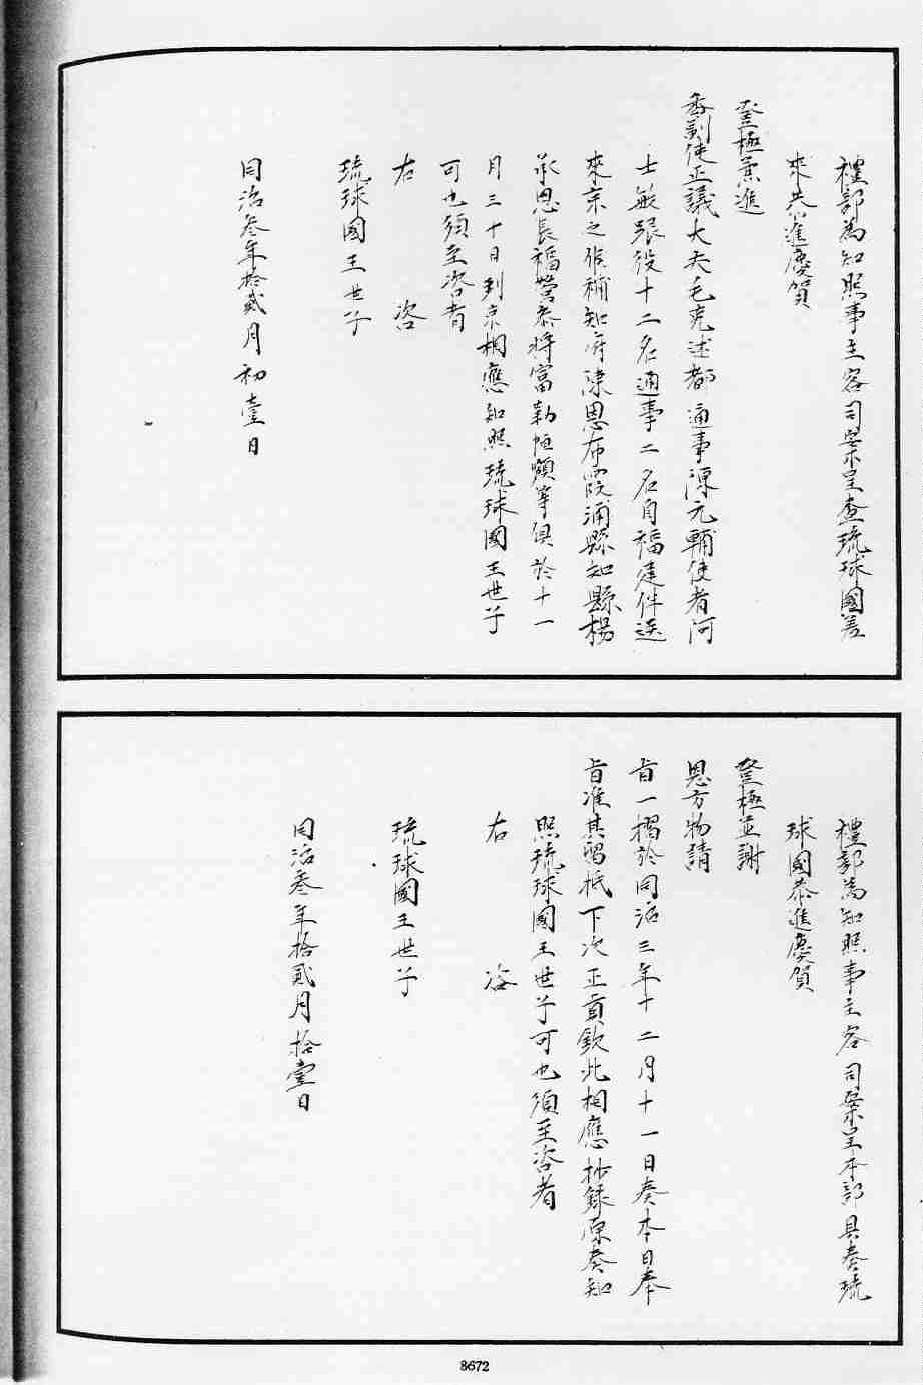 禮部為知照事主客司案呈查琉球國差
來恭進慶賀
登極兼進
香副使正議大夫毛克述都通事陳元輔使者向
士敏跟役十二名通事二名自福建伴送
來京之候補知府陳恩布霞浦縣知縣楊
承恩長福營參將富勒恒額等俱於十一
月三十日到京相應知照琉球國王世子
可也須至咨者
右　咨
琉球國王世子
同治叁年拾貳月初壹日
禮部為知照事主客司案呈本部具奏琉
球國恭進慶賀
登極並謝
恩方物請
旨一摺於同治三年十二月十一日奏本日奉
旨准其留抵下次正貢欽此相應抄錄原奏知
照琉球國王世子可也須至咨者
右　咨
琉球國王世子
同治叁年拾貳月拾壹日
3672